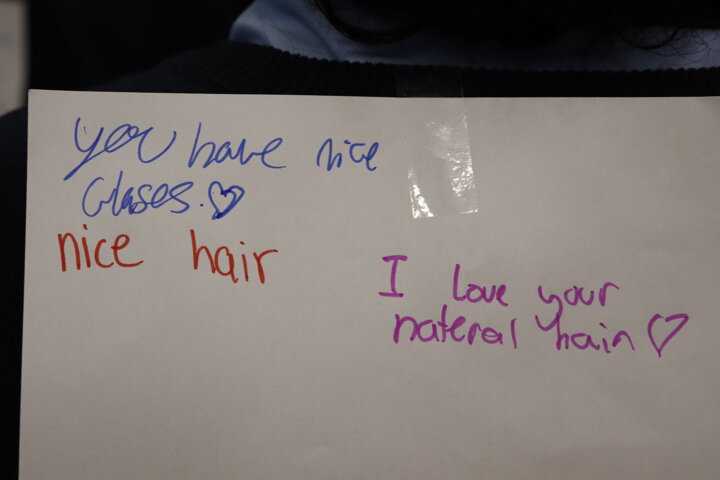 you have nice
Glases. ♡
nice hair
I love your
nateral hair ♡